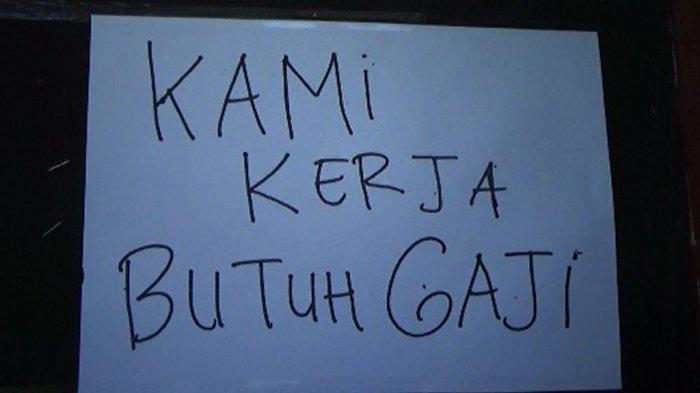 KAMi
KERJA
BUTUH GAJi